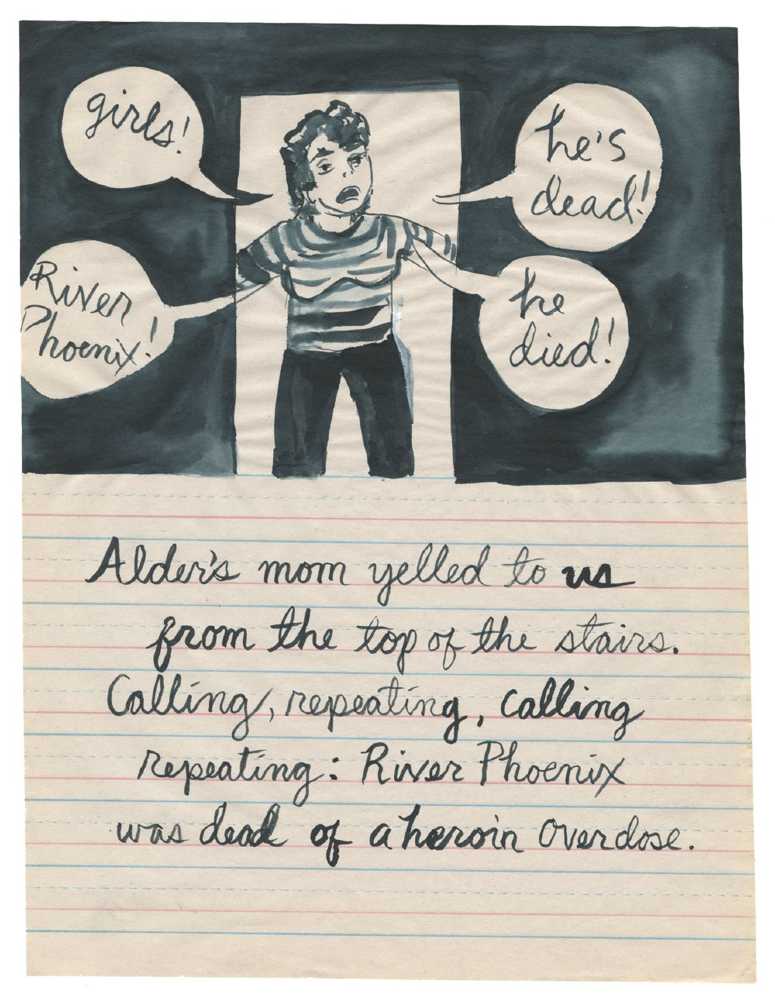 girls!
he's
dead!
River
Phoenix!
he
died!
Alder's mom yelled to us
from the top of the stairs.
Calling, repeating, calling
repeating: River Phoenix
was dead of a heroin overdose.